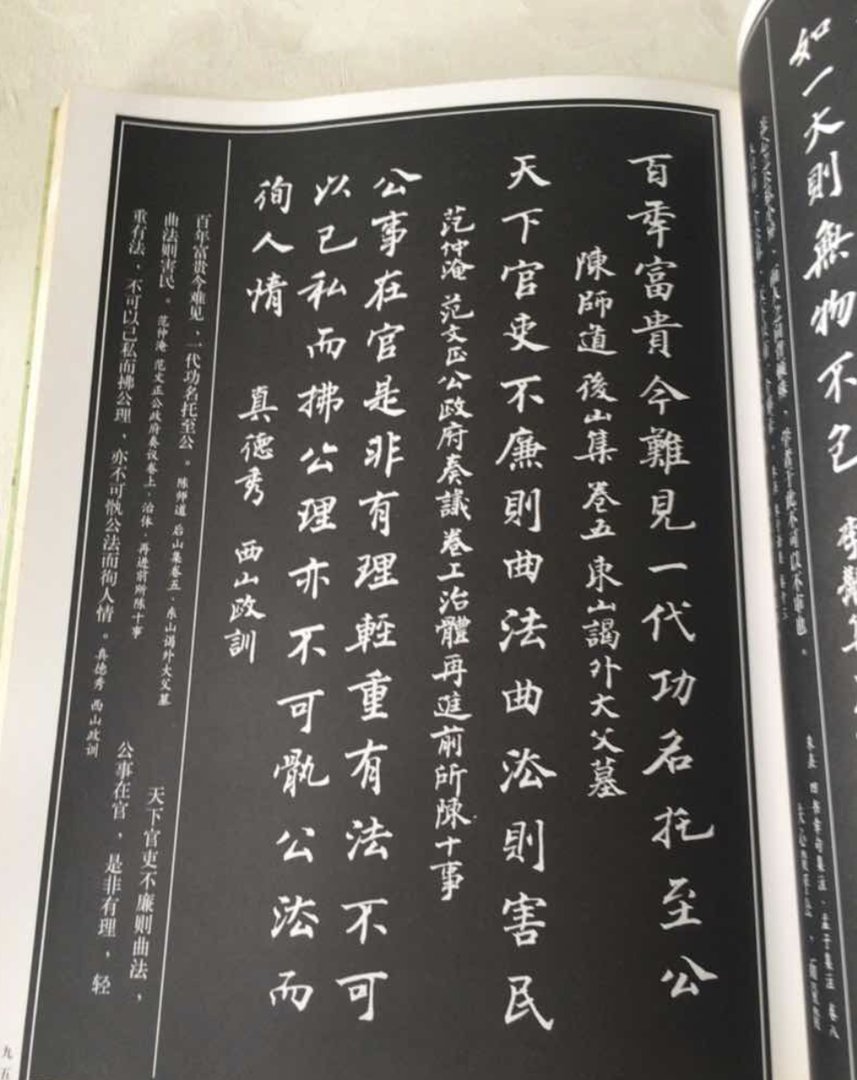 如一大則無物不包
朱熹 四书章句集注·孟子集注 卷八
百年富貴今難見一代功名托至公
陳師道 後山集 卷五 東山謁外大父墓
天下官吏不廉則曲法曲法則害民
范仲淹 范文正公政府奏議卷上治體再進前所陳十事
公事在官是非有理輕重有法不可
以己私而拂公理亦不可骫公法而
徇人情
真德秀 西山政訓
百年富贵今难见，一代功名托至公。陈师道 后山集卷五·东山谒外大父墓 天下官吏不廉则曲法，
曲法则害民。范仲淹 范文正公政府奏议卷上·治体·再进前所陈十事 公事在官，是非有理，轻
重有法，不可以己私而拂公理，亦不可骫公法而徇人情。真德秀 西山政训
九五